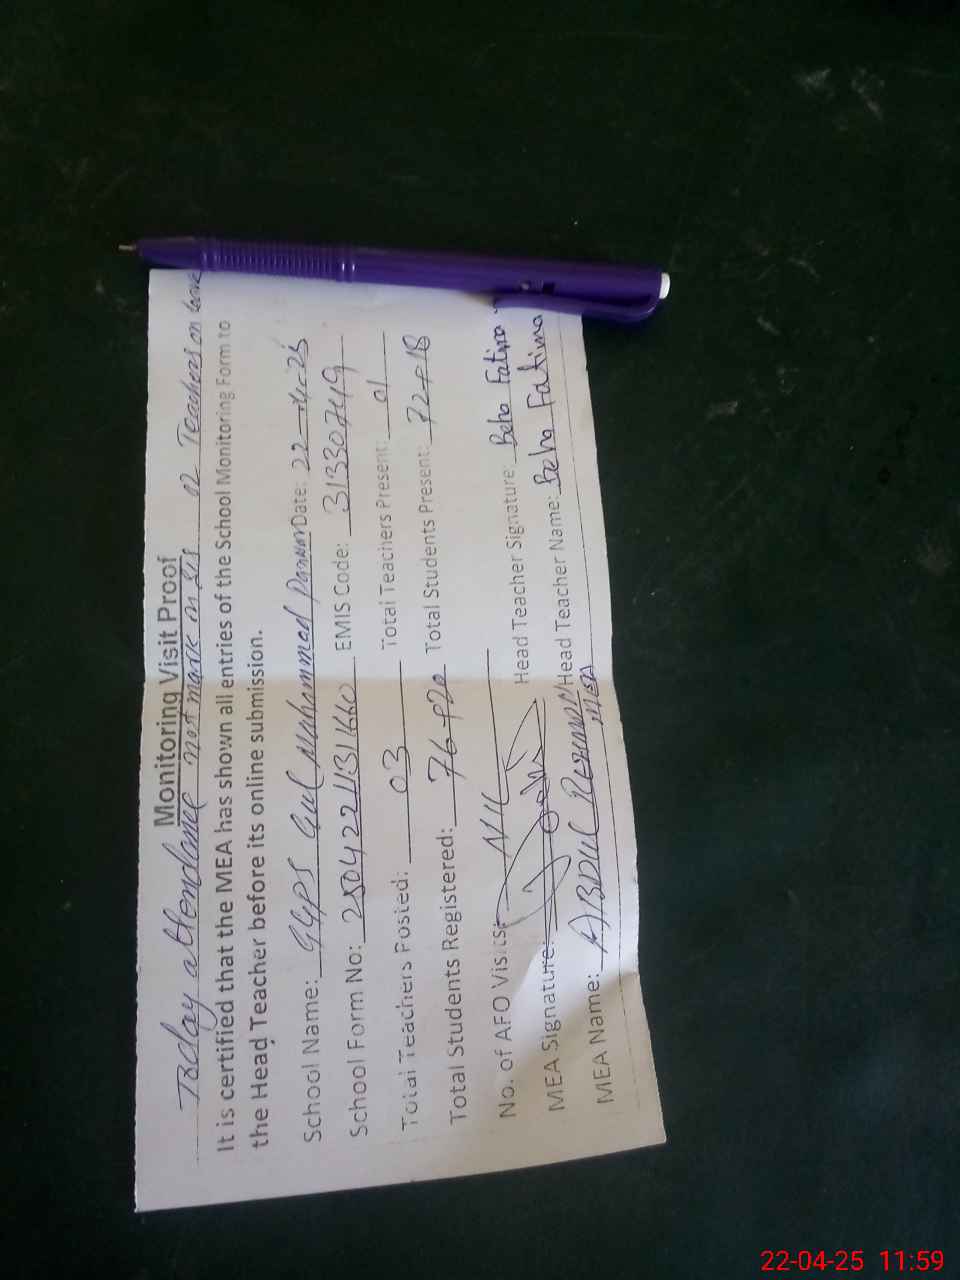 Monitoring Visit Proof
Today attendance not mark on SIS 02 Teachers on leave
It is certified that the MEA has shown all entries of the School Monitoring Form to
the Head Teacher before its online submission.
School Name: GGPS Gul Muhammad Date: 22-4-25
School Form No: EMIS Code: 31330749
Total Teachers Posted: 03 Total Teachers Present: 01
Total Students Registered: 76+20 Total Students Present: 72+18
No. of AFO Visits: Nil
MEA Signature: Head Teacher Signature: Beha Fatima
MEA Name: ABDUL Head Teacher Name: Beha Fatima
22-04-25 11:59